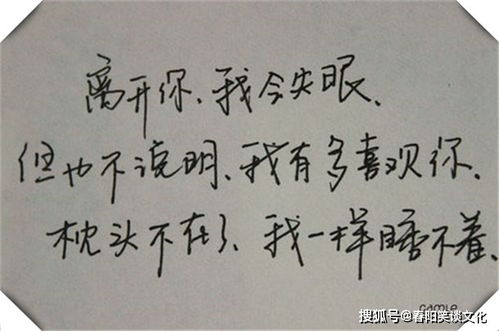 离开你、我会失眠、
但也不说明、我有多喜欢你、
枕头不在了、我一样睡不着、
camie
搜狐号@春阳笑谈文化